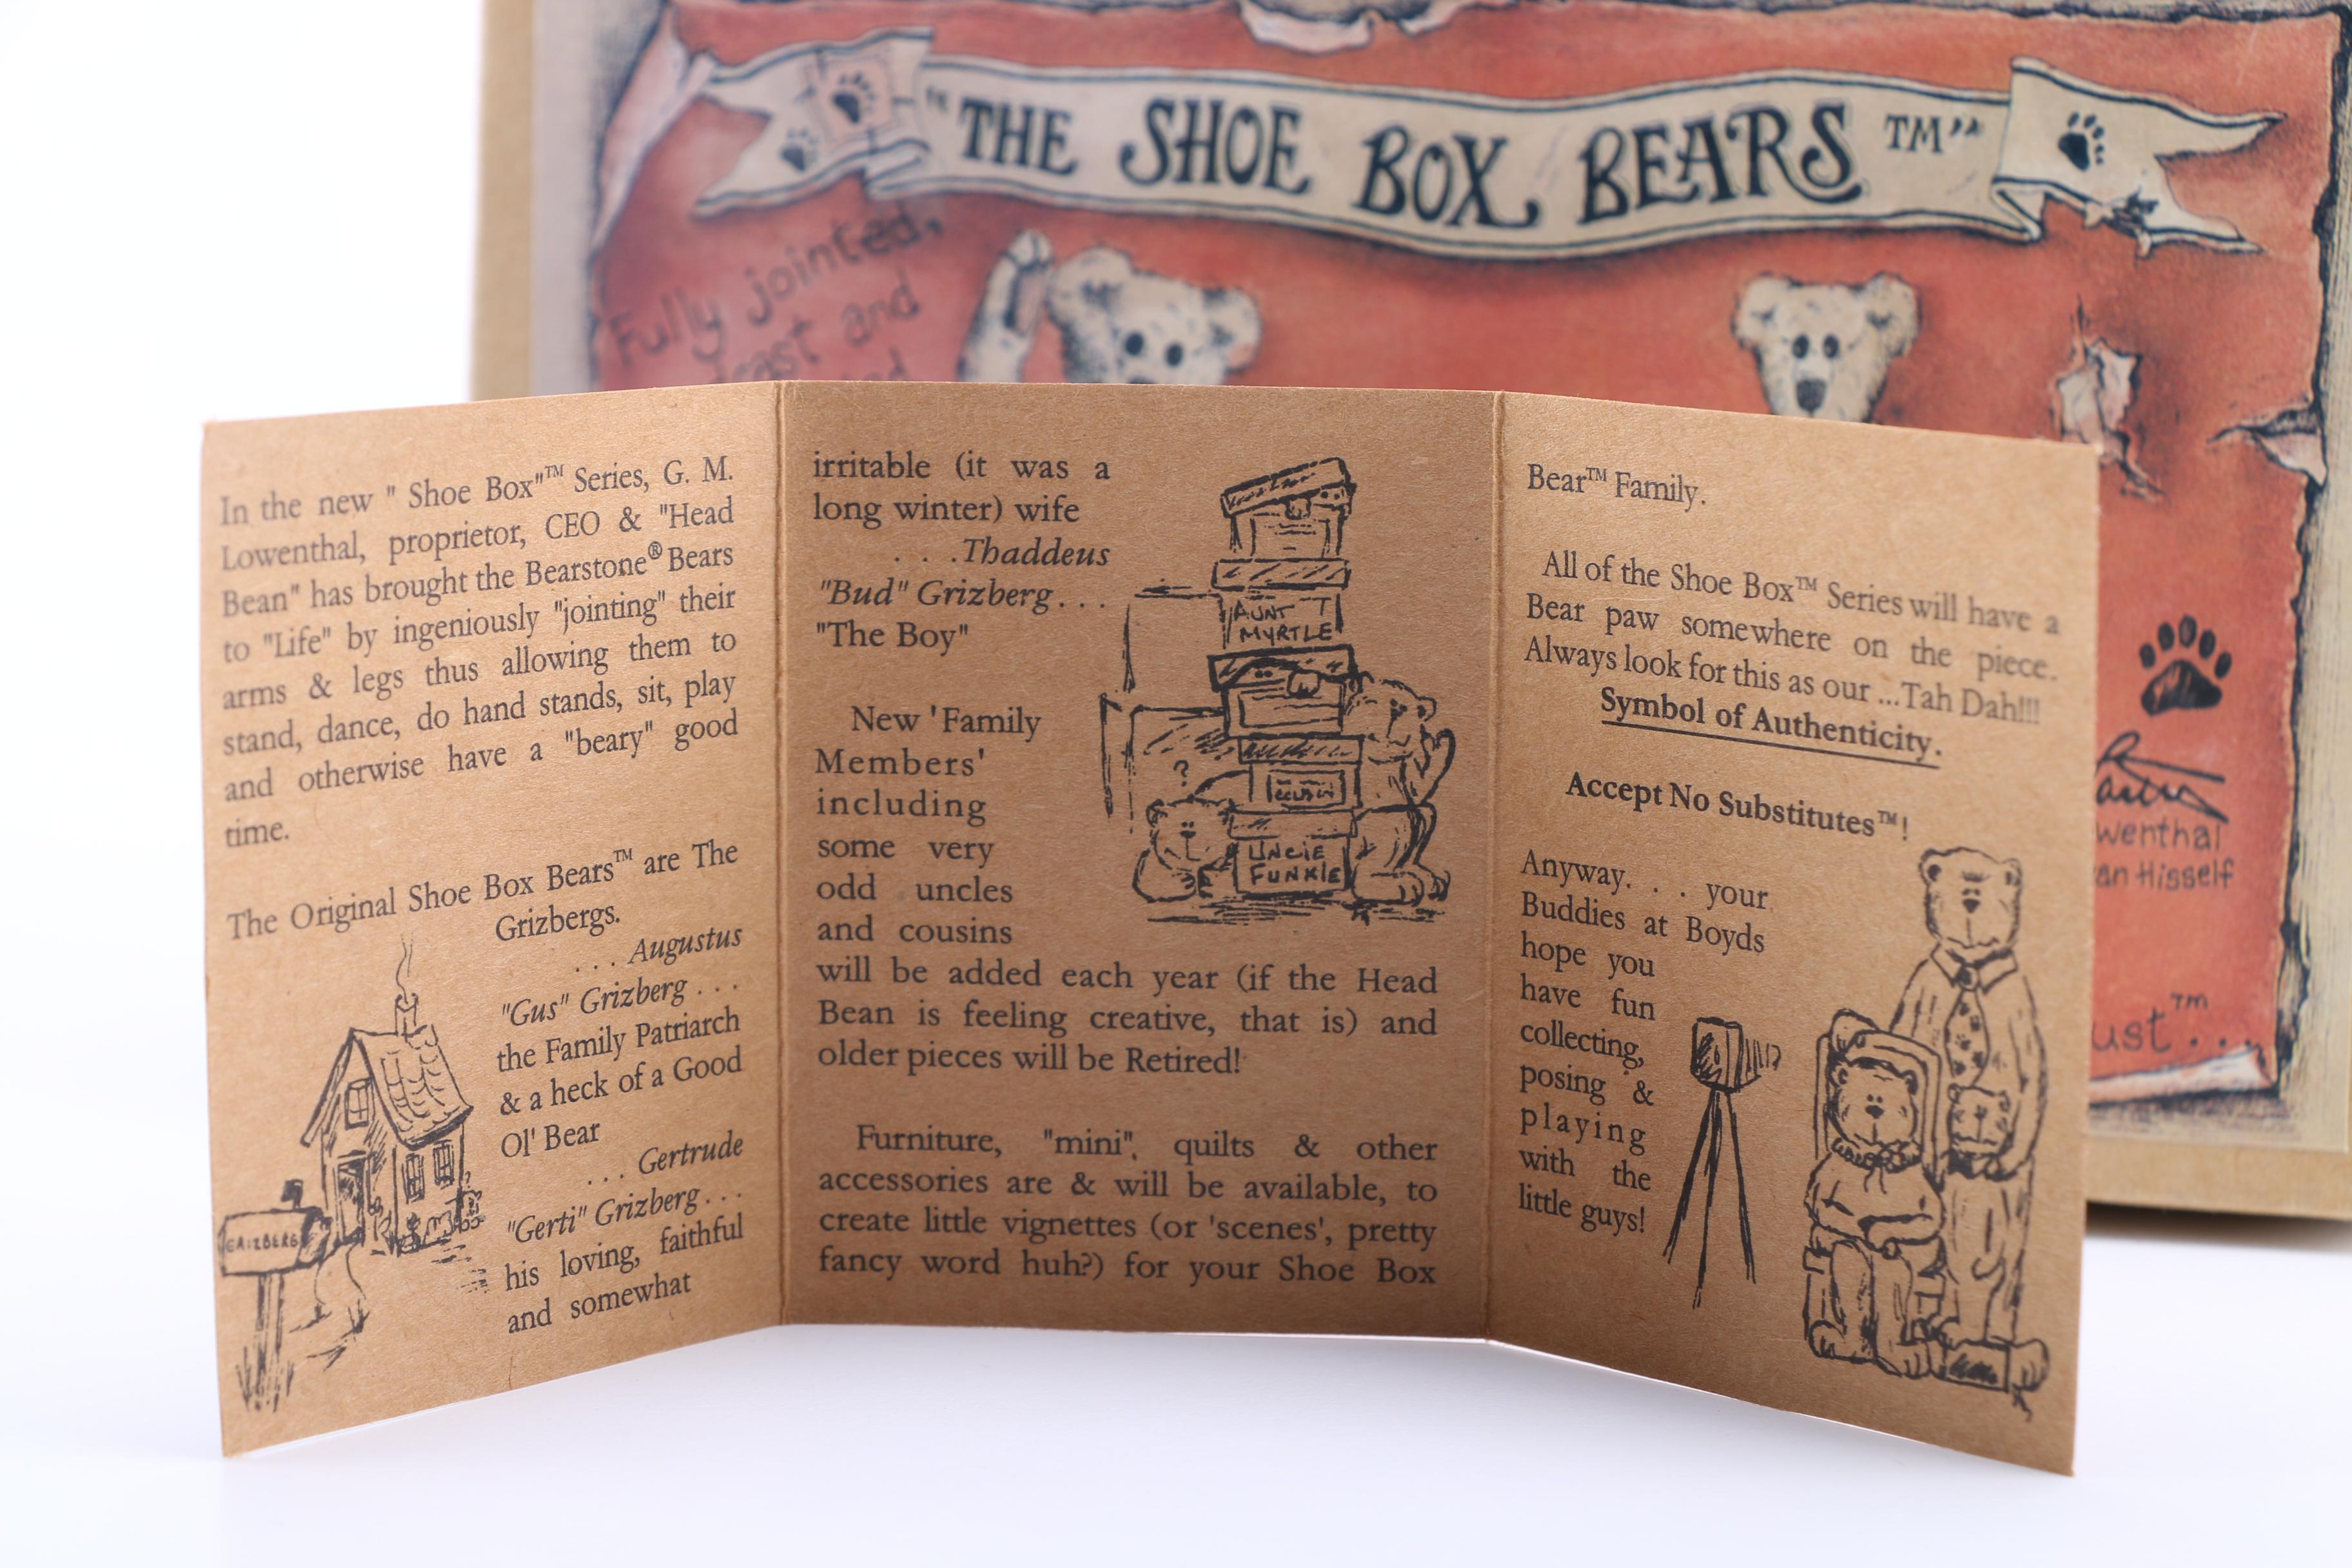 "THE SHOE BOX BEARS ™"
Fully jointed,
and
In the new " Shoe Box"™ Series, G. M.
Lowenthal, proprietor, CEO & "Head
Bean" has brought the Bearstone® Bears
to "Life" by ingeniously "jointing" their
arms & legs thus allowing them to
stand, dance, do hand stands, sit, play
and otherwise have a "beary" good
time.
The Original Shoe Box Bears™ are The
Grizbergs.
. . . Augustus
"Gus" Grizberg . . .
the Family Patriarch
& a heck of a Good
Ol' Bear
. . . Gertrude
"Gerti" Grizberg . . .
his loving, faithful
and somewhat
GRIZBERG
irritable (it was a
long winter) wife
. . .Thaddeus
"Bud" Grizberg . . .
"The Boy"
New 'Family
Members'
including
some very
odd uncles
and cousins
will be added each year (if the Head
Bean is feeling creative, that is) and
older pieces will be Retired!
Furniture, "mini", quilts & other
accessories are & will be available, to
create little vignettes (or 'scenes', pretty
fancy word huh?) for your Shoe Box
AUNT
MYRTLE
?
UNCLE
FUNKLE
Bear™ Family.
All of the Shoe Box™ Series will have a
Bear paw somewhere on the piece.
Always look for this as our ...Tah Dah!!!
Symbol of Authenticity.
Accept No Substitutes™!
Anyway. . . your
Buddies at Boyds
hope you
have fun
collecting,
posing &
playing
with the
little guys!
wenthal
an Hisself
ust™...